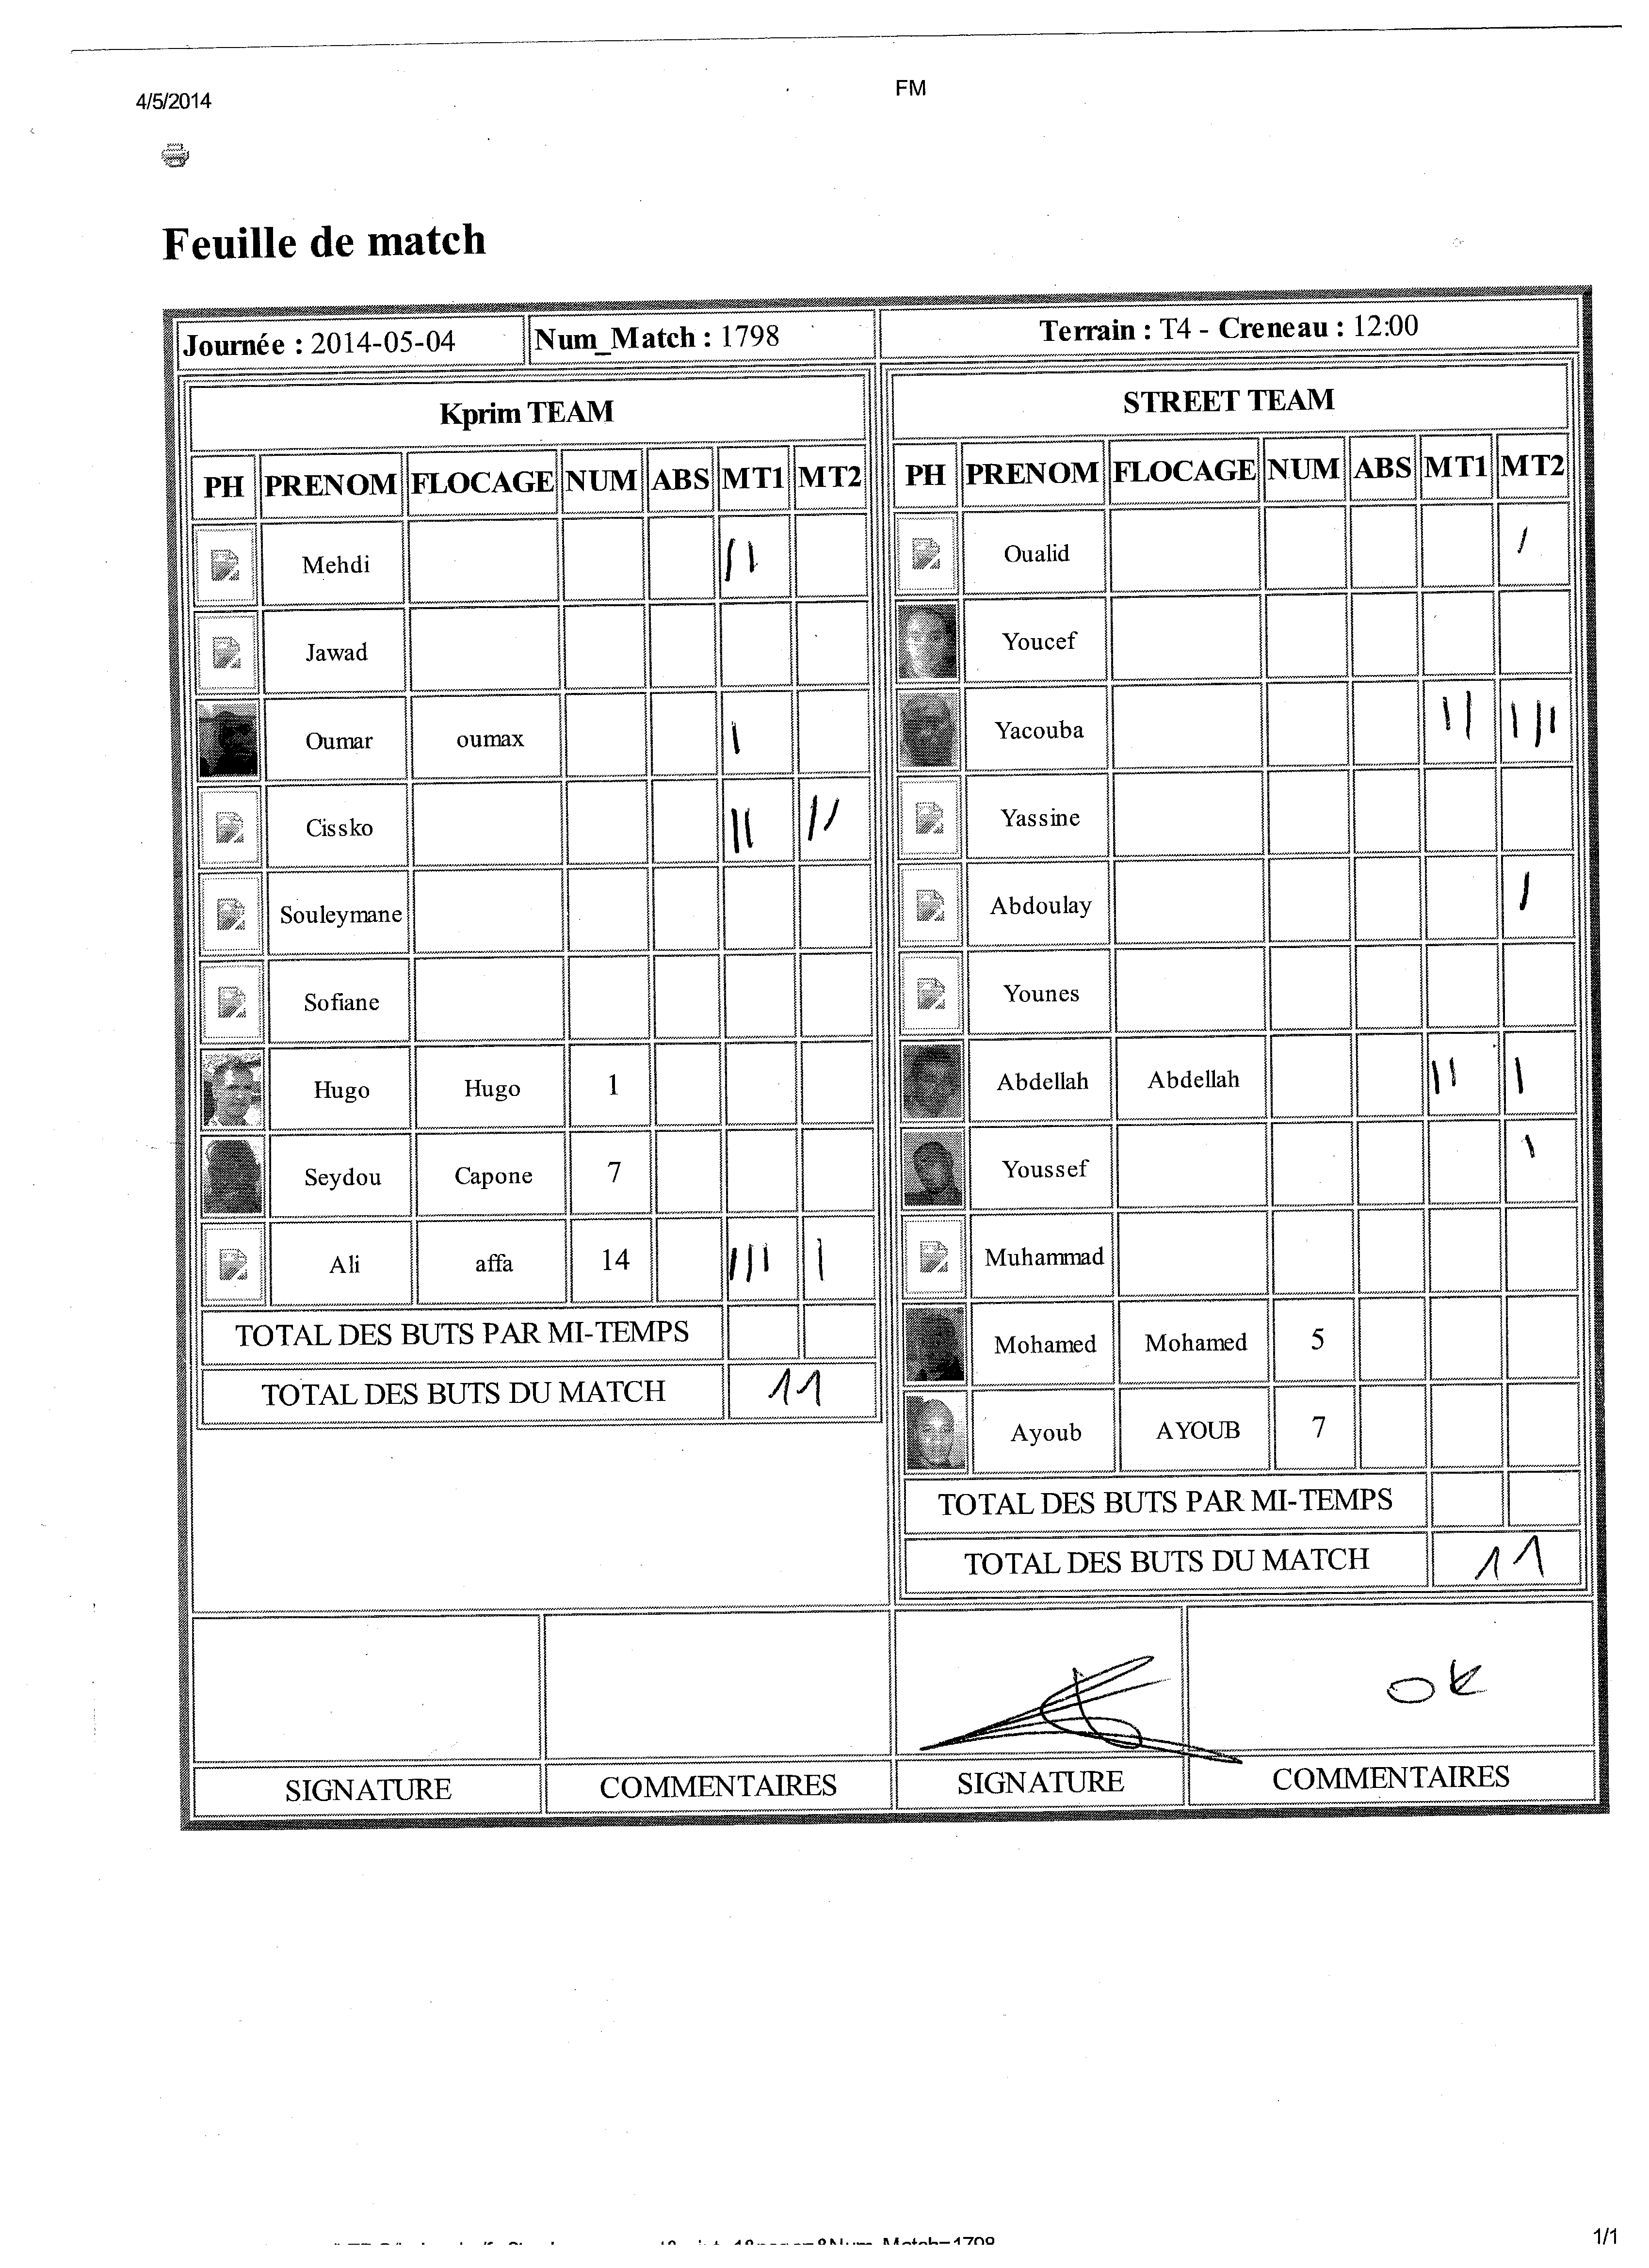 4/5/2014 FM
Feuille de match
Journée : 2014-05-04 Num_Match : 1798 Terrain : T4 - Creneau : 12:00
Kprim TEAM
PH PRENOM FLOCAGE NUM ABS MT1 MT2
Mehdi ||
Jawad
Oumar oumax |
Cissko || ||
Souleymane
Sofiane
Hugo Hugo 1
Seydou Capone 7
Ali affa 14 ||| |
TOTAL DES BUTS PAR MI-TEMPS
TOTAL DES BUTS DU MATCH 11
STREET TEAM
PH PRENOM FLOCAGE NUM ABS MT1 MT2
Oualid |
Youcef
Yacouba || |||
Yassine
Abdoulay |
Younes
Abdellah Abdellah || |
Youssef |
Muhammad
Mohamed Mohamed 5
Ayoub AYOUB 7
TOTAL DES BUTS PAR MI-TEMPS
TOTAL DES BUTS DU MATCH 11
OK
SIGNATURE COMMENTAIRES SIGNATURE COMMENTAIRES
1/1